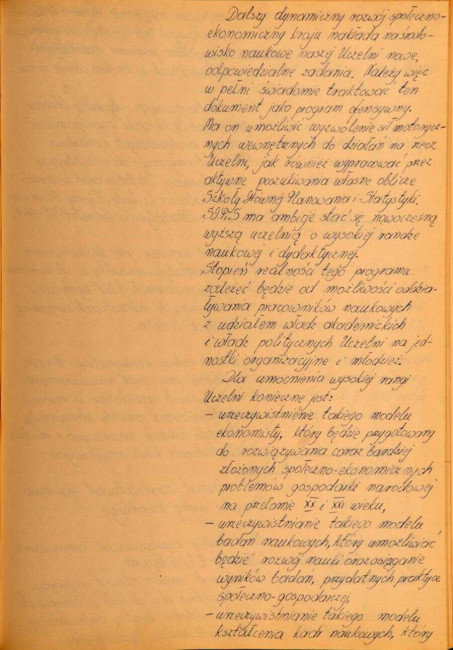 Dalszy dynamiczny rozwój społeczno-
ekonomiczny kraju nakłada na środo-
wisko naukowe naszej Uczelni nowe,
odpowiedzialne zadania. Należy więc
w pełni świadomie traktować ten
dokument jako program ofensywny.
Ma on umożliwić wyzwolenie sił motorycz-
nych wewnętrznych do działań na rzecz
Uczelni, jak również wypracować przez
aktywne poszukiwania własne oblicze
Szkoły Głównej Planowania i Statystyki.
SGPiS ma ambicję stać się nowoczesną
wyższą uczelnią o wysokiej randze
naukowej i dydaktycznej.
Stopień realności tego programu
zależeć będzie od możliwości oddzia-
ływania pracowników naukowych
z udziałem władz akademickich
i władz politycznych Uczelni na jed-
nostki organizacyjne i młodzież.
Dla umocnienia wysokiej rangi
Uczelni konieczne jest:
– urzeczywistnienie takiego modelu
ekonomisty, który będzie przygotowany
do rozwiązywania coraz bardziej
złożonych społeczno-ekonomicznych
problemów gospodarki narodowej
na przełomie XX i XXI wieku,
– urzeczywistnianie takiego modelu
badań naukowych, który umożliwiać
będzie rozwój nauki oraz osiąganie
wyników badań, przydatnych praktyce
społeczno-gospodarczej,
– urzeczywistnianie takiego modelu
kształcenia kadr naukowych, który